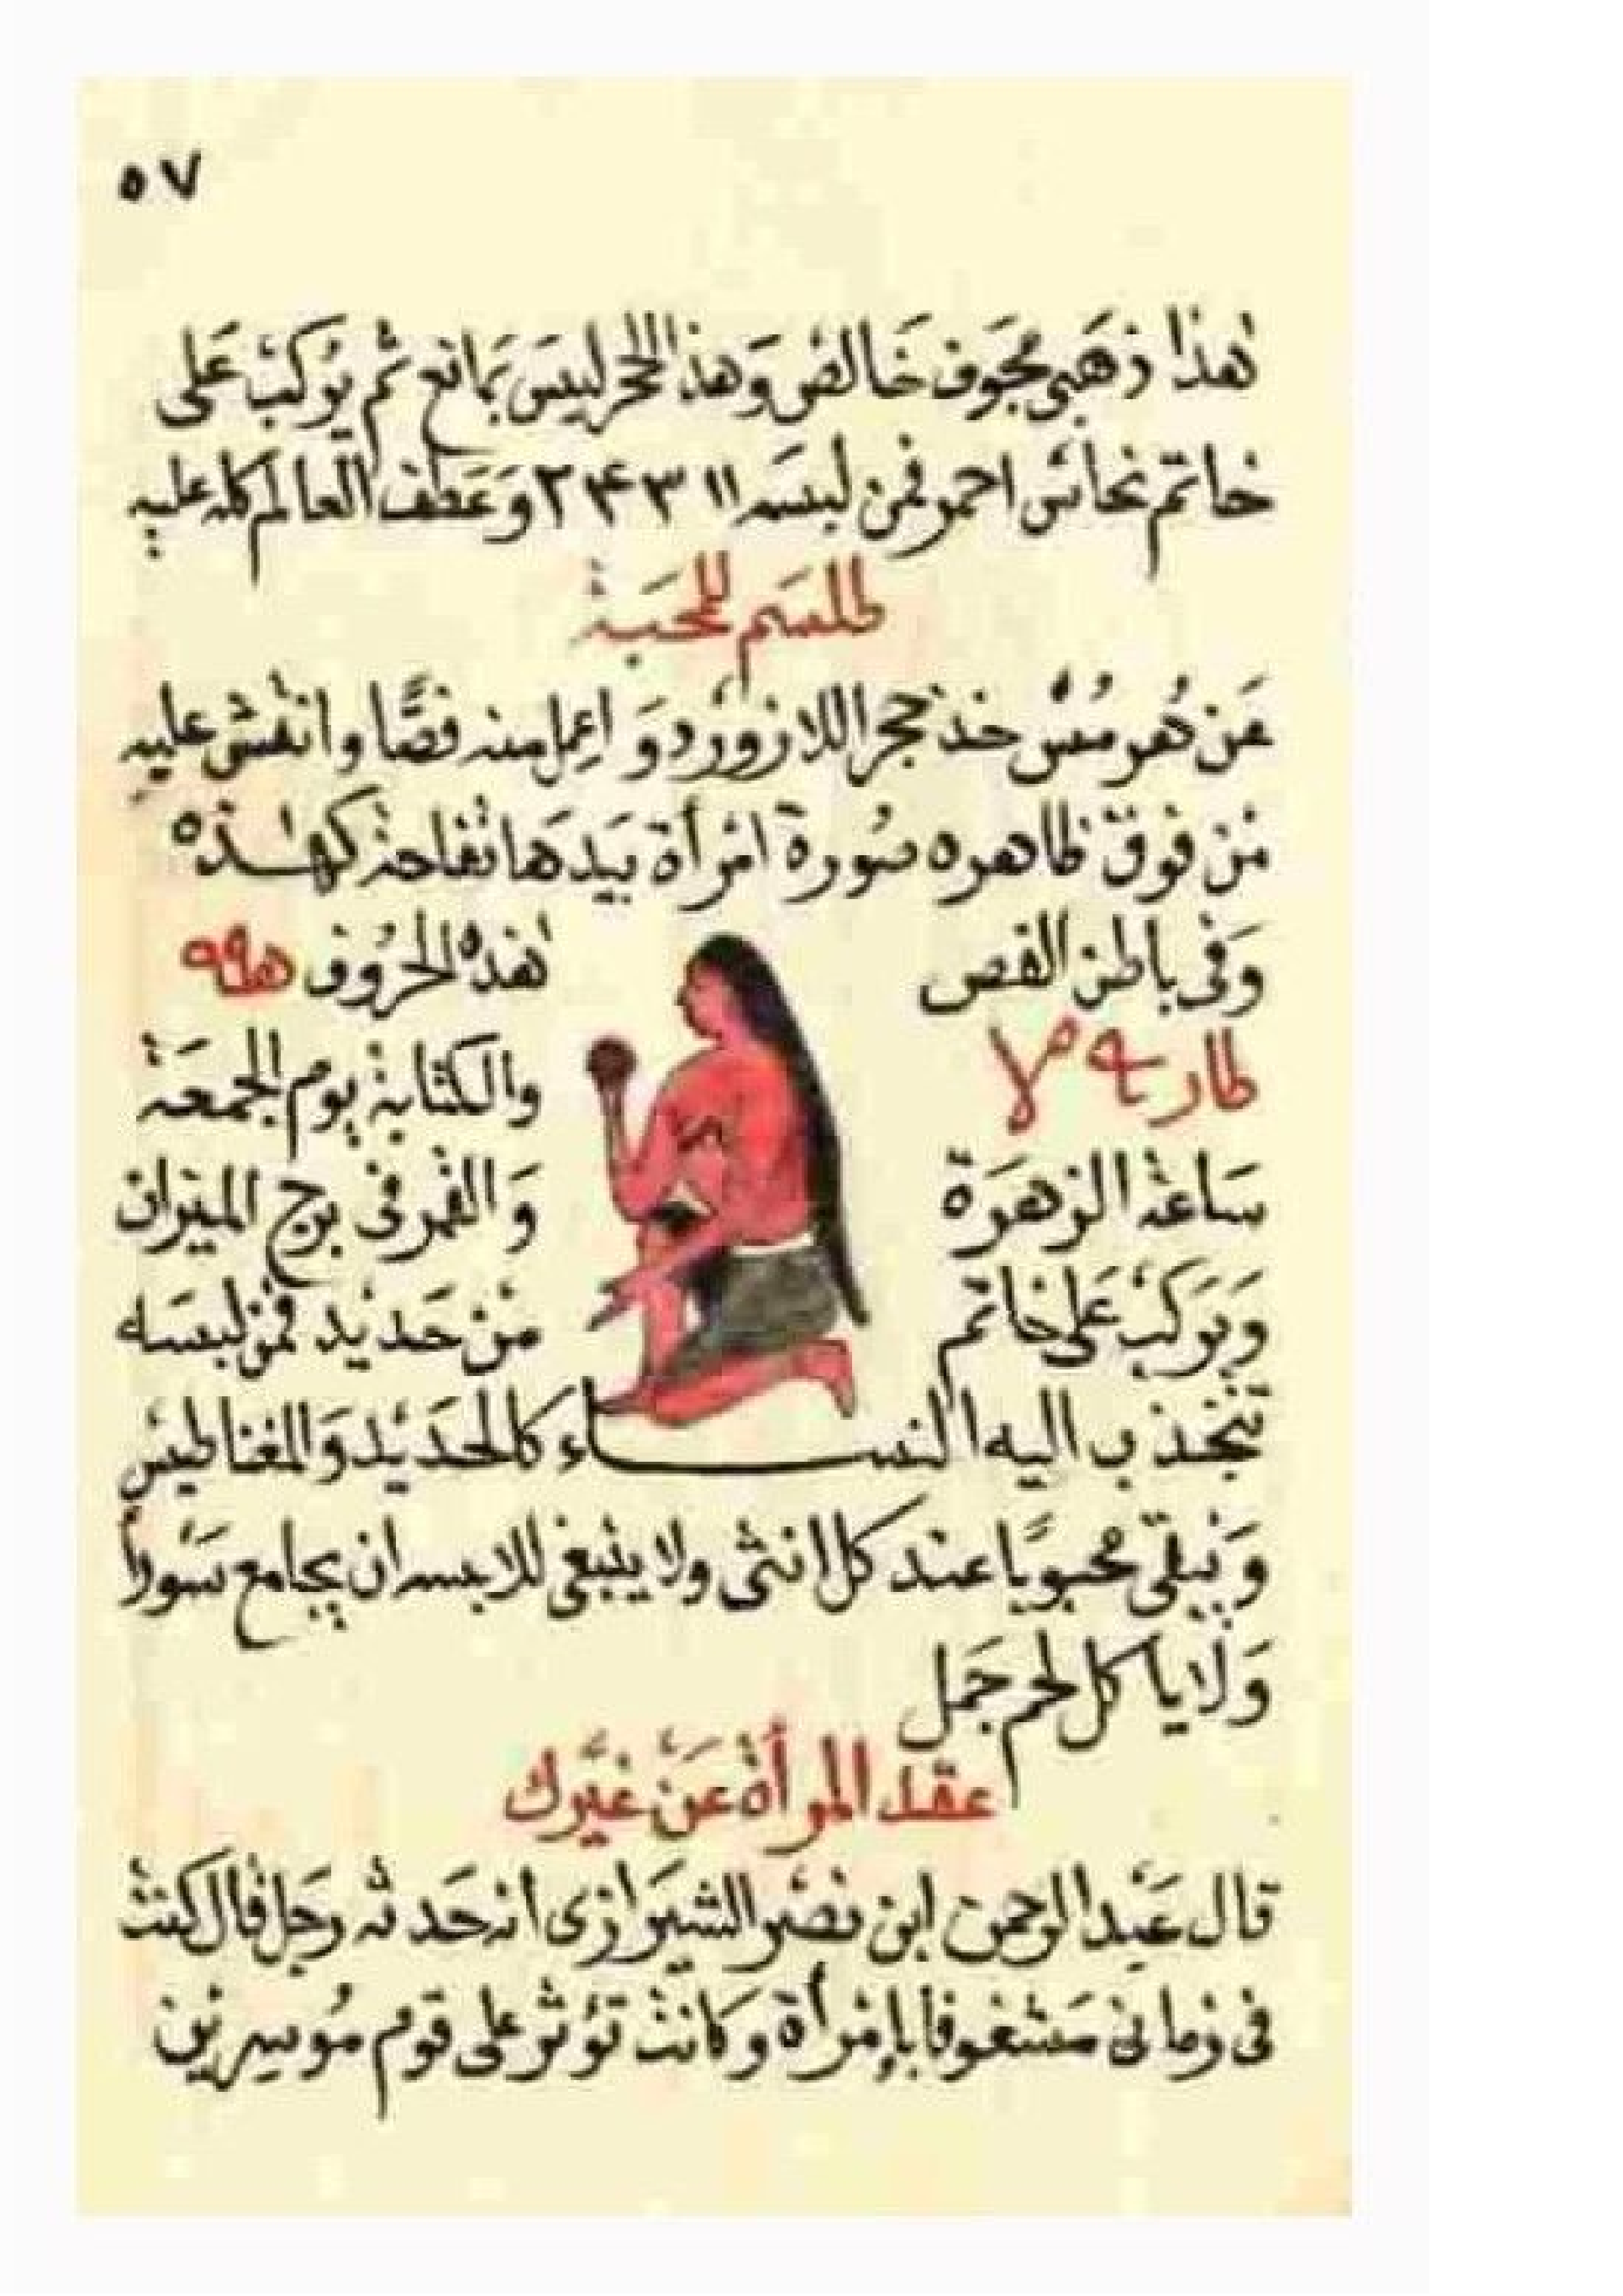 ٥٧
هذا ذهبى مجوف خالص وهذا الحجر ليس بمانع ثم يركب على
خاتم نحاس احمر فمن لبسه ١١ ٣ ۴ ٣ ٢ وعطف العالم كله عليه
طلسم للمحبة
عن هرمس خذ حجر اللازورد و اعمل منه فصًّا وانقش عليه
من فوق ظاهره صورة امرأة بيدها تفاحة كهذه
وفى باطن الفص هذه الحروف
والكتابة يوم الجمعة
ساعة الزهرة والقمر فى برج الميزان
ويركب على خاتم من حديد فمن لبسه
تنجذب اليه النساء كالحديد والمغناطيس
ويبقى محبوبًا عند كل انثى ولا ينبغى للابسه ان يجامع سودا
ولا ياكل لحم جمل
عقد المرأة عن غيرك
قال عبد الرحمن ابن نصر الشيرازى انه حدثه رجل قال كنت
فى زمانى مشغوفا بإمرأة وكانت تؤثر على قوم موسرين